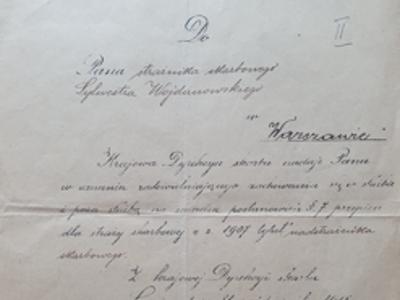 Do
II
Pana strażnika skarbowego
Sylwestra Wojdanowskiego
w
Warszawie
Krajowa Dyrekcya skarbu nadaje Panu
w uznaniu zadowalniającego zachowania się w służbie
i poza służbą na zasadzie postanowień § 7 przepisu
dla straży skarbowej z r. 1907 tytuł nadstrażnika
skarbowego.
Z krajowej Dyrekcyi skarbu